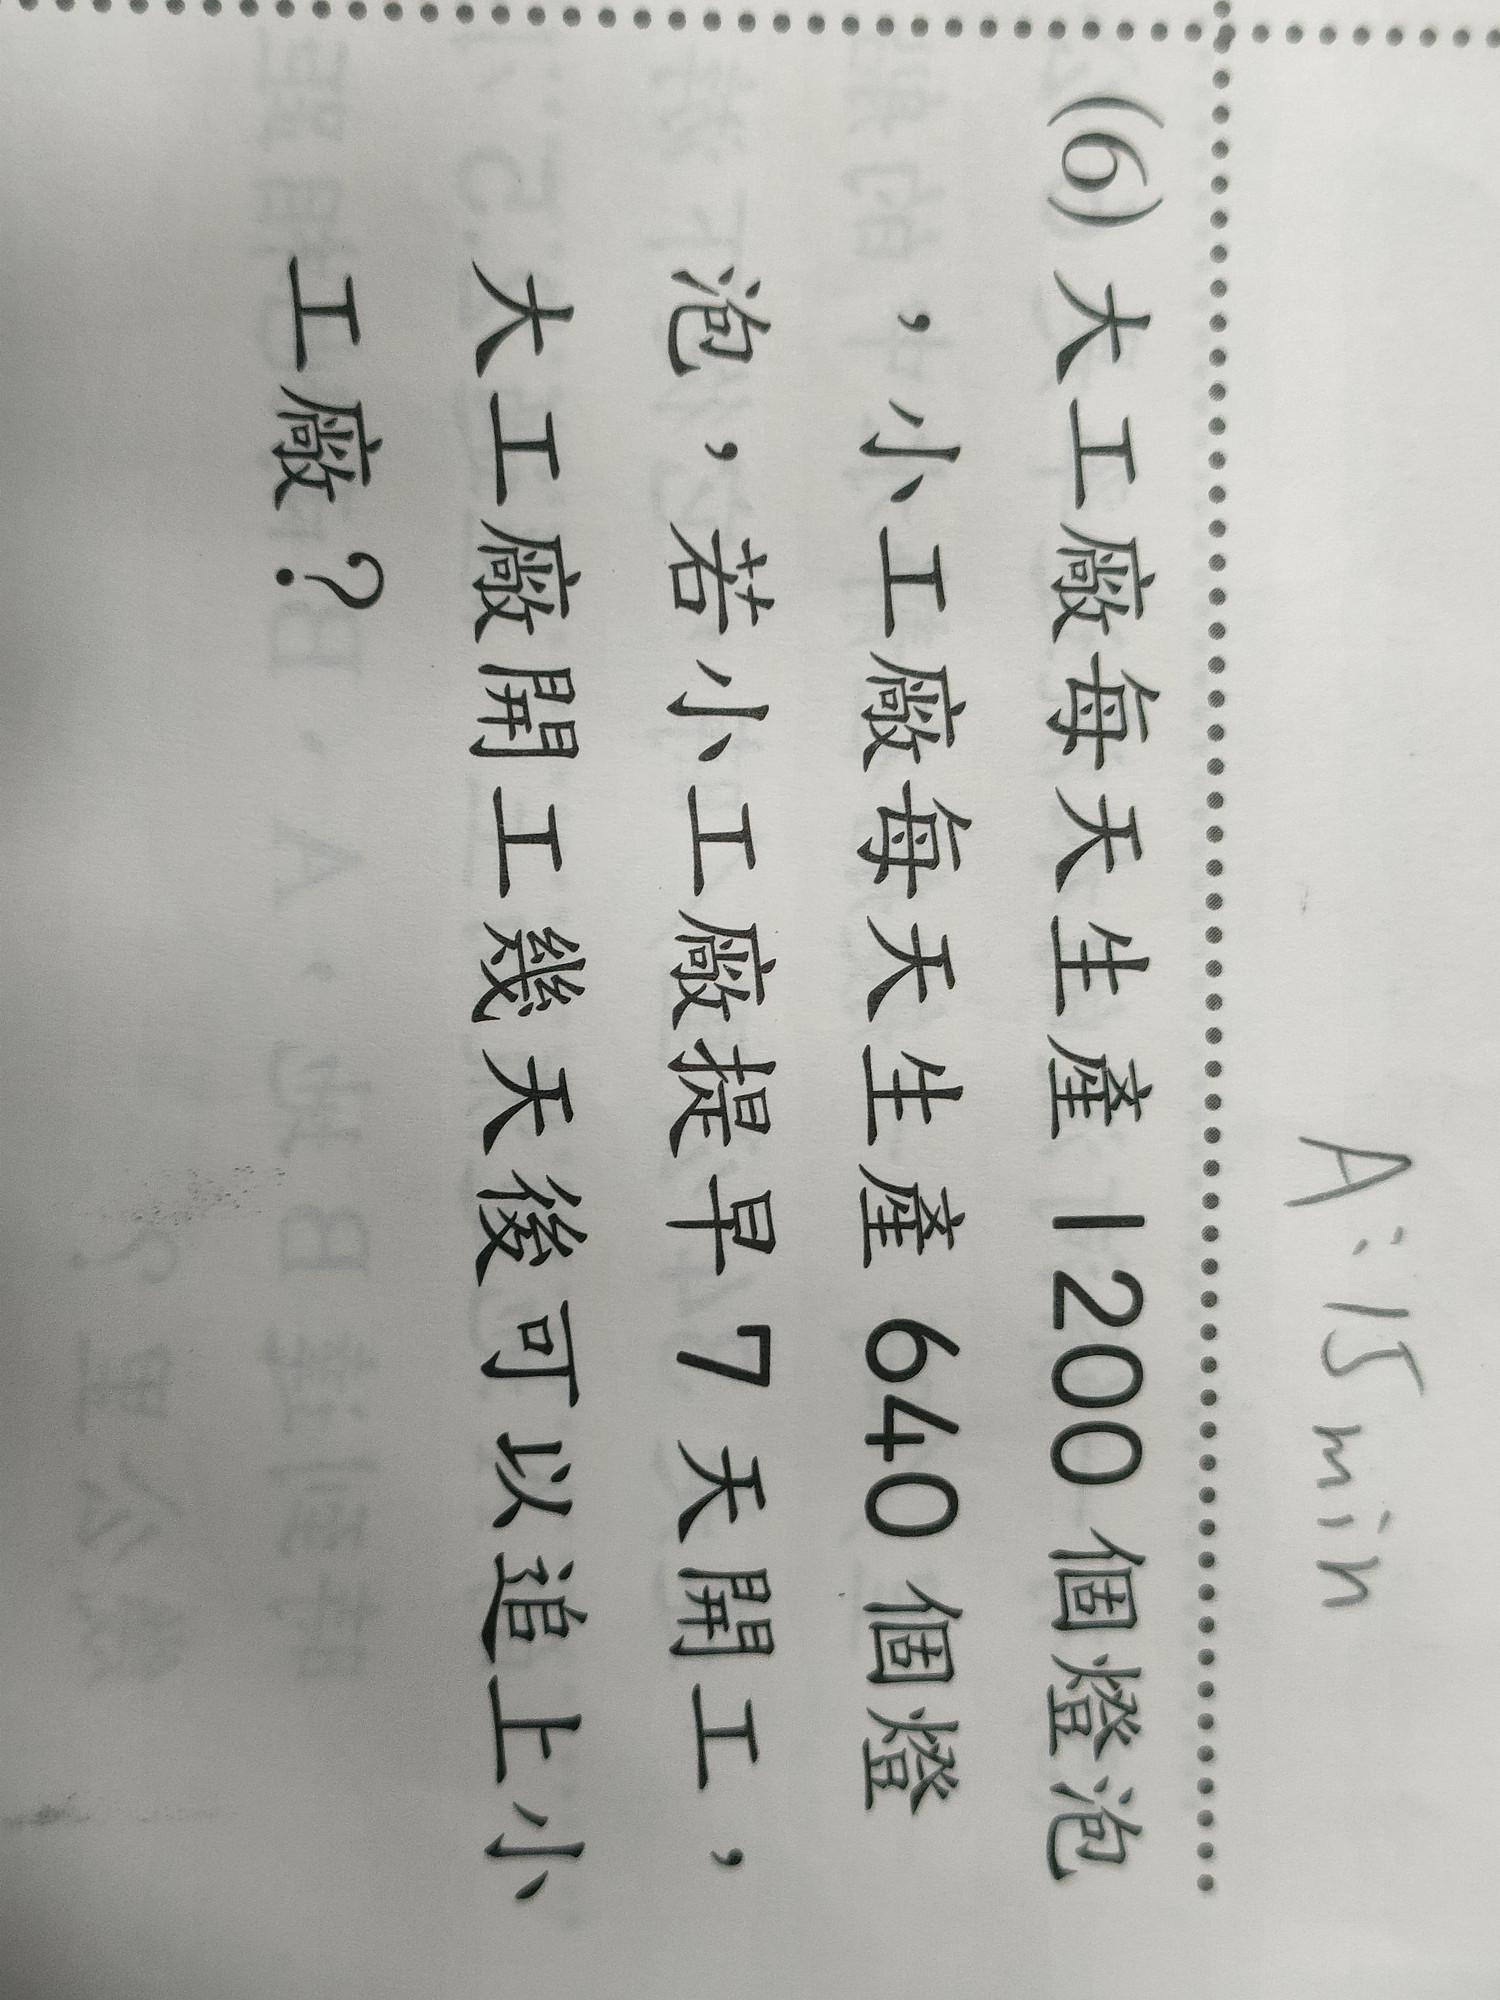 A:15min
(6)大工廠每天生產1200個燈泡
，小工廠每天生產640個燈
泡，若小工廠提早7天開工，
大工廠開工幾天後可以追上小
工廠？